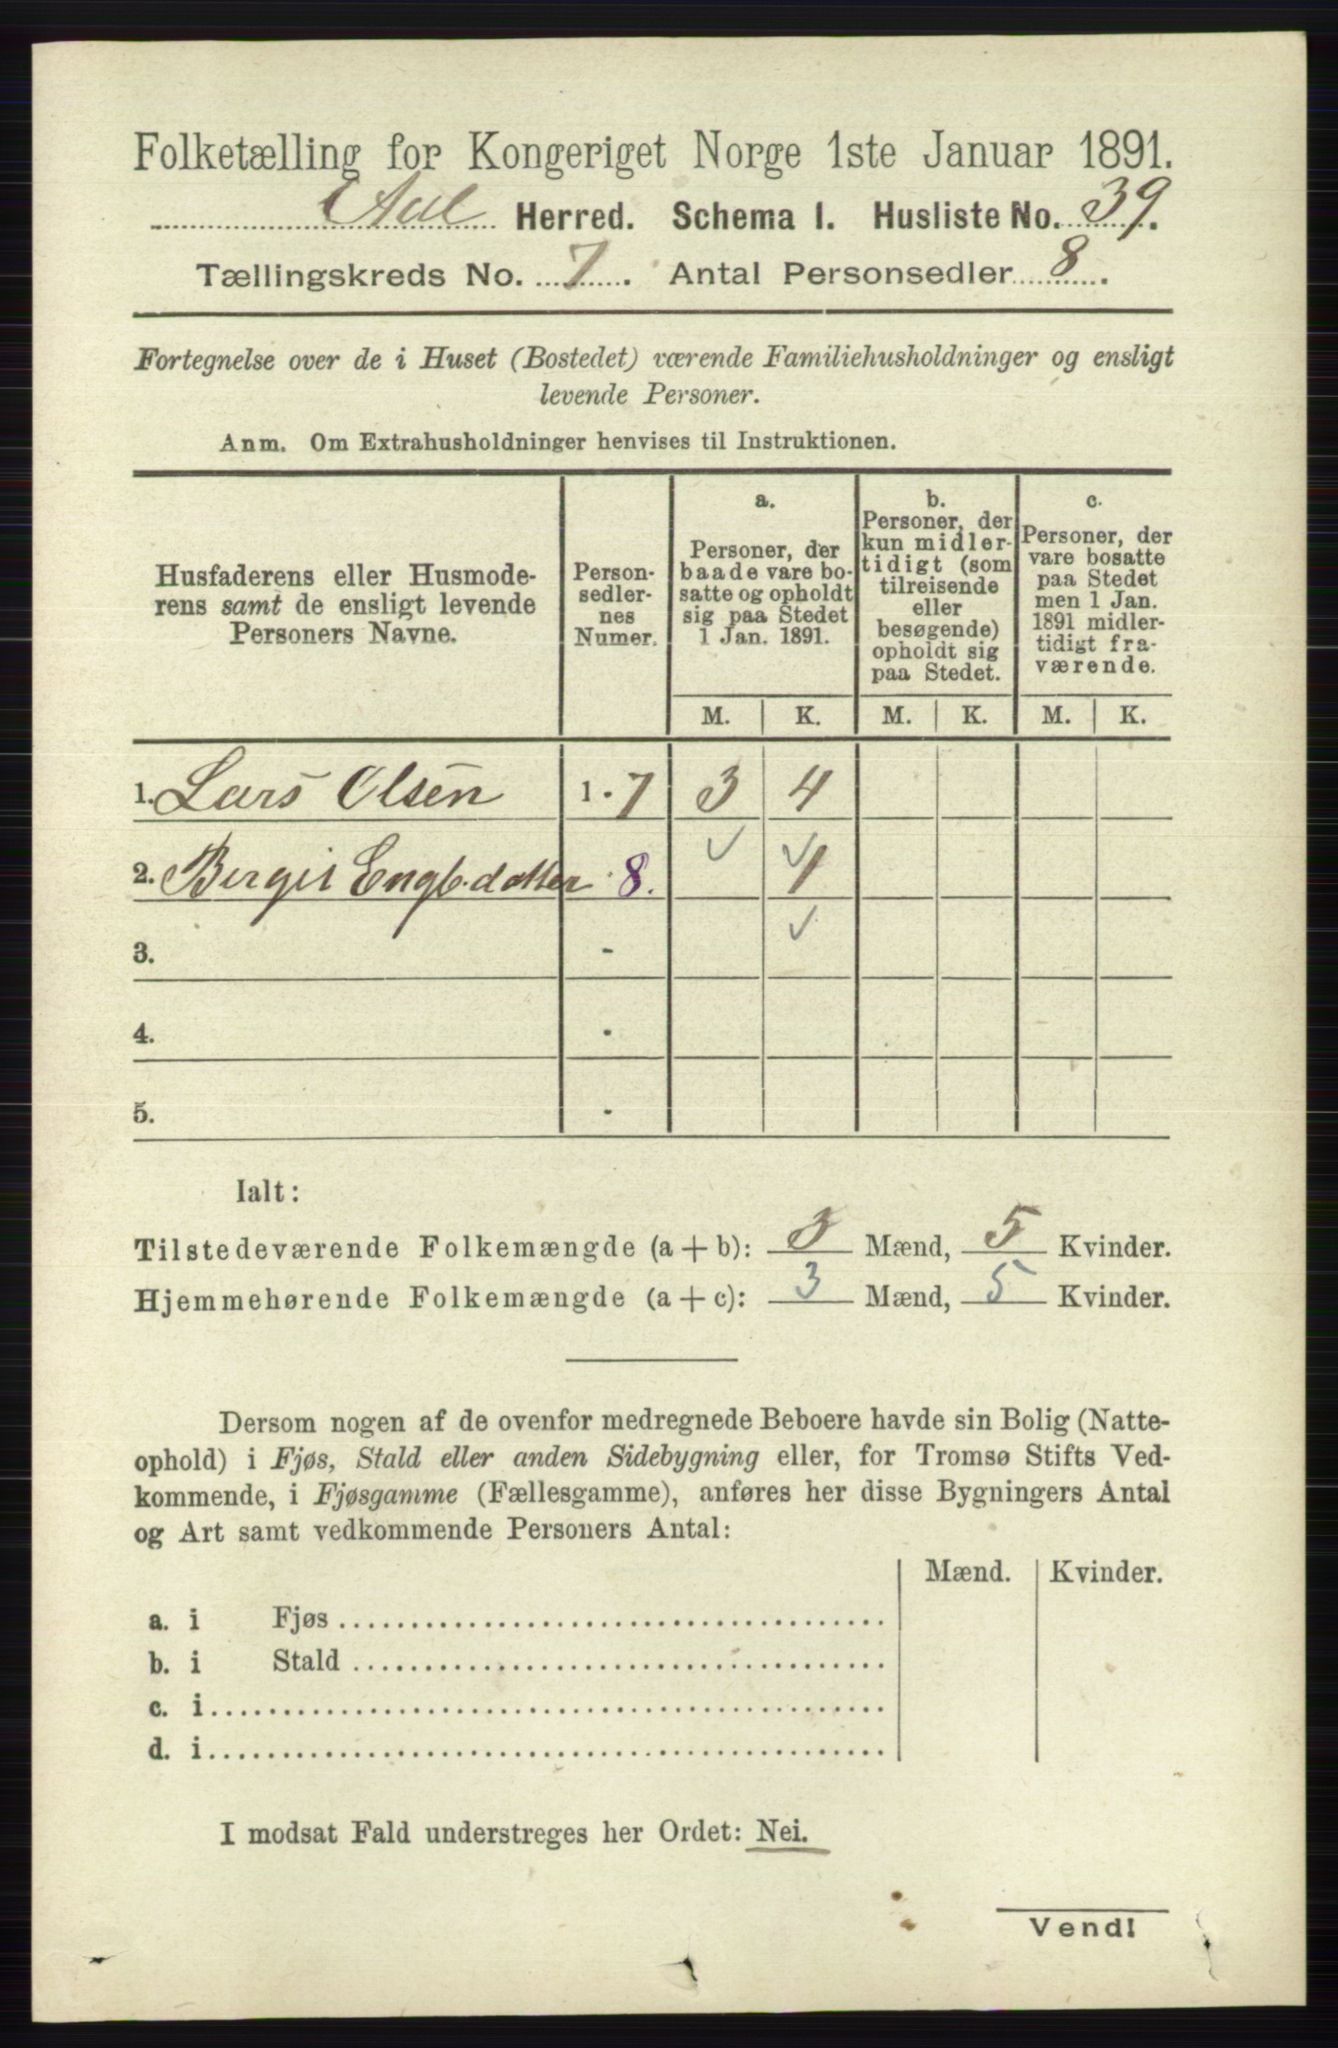 Folketælling for Kongeriget Norge 1ste Januar 1891.
Aal Herred. Schema I. Husliste No. 39.
Tællingskreds No. 7. Antal Personsedler 8.
Fortegnelse over de i Huset (Bostedet) værende Familiehusholdninger og ensligt
levende Personer.
Anm. Om Extrahusholdninger henvises til Instruktionen.
Husfaderens eller Husmode-
rens samt de ensligt levende
Personers Navne.
Person-
sedler-
nes
Numer.
a.
Personer, der
baade vare bo-
satte og opholdt
sig paa Stedet
1 Jan. 1891.
b.
Personer, der
kun midler-
tidigt (som
tilreisende
eller
besøgende)
opholdt sig
paa Stedet.
c.
Personer, der
vare bosatte
paa Stedet
men 1 Jan.
1891 midler-
tidigt fra-
værende.
M. K. M. K. M. K.
1. Lars Olsen 1 - 7 3 4
2. Bergit Engb.datter - 8. 1
3. -
4. -
5. -
Ialt:
Tilstedeværende Folkemængde (a + b): 3 Mænd, 5 Kvinder.
Hjemmehørende Folkemængde (a + c): 3 Mænd, 5 Kvinder.
Dersom nogen af de ovenfor medregnede Beboere havde sin Bolig (Natte-
ophold) i Fjøs, Stald eller anden Sidebygning eller, for Tromsø Stifts Ved-
kommende, i Fjøsgamme (Fællesgamme), anføres her disse Bygningers Antal
og Art samt vedkommende Personers Antal:
Mænd. Kvinder.
a. i Fjøs
b. i Stald
c. i
d. i
I modsat Fald understreges her Ordet: Nei.
Vend!